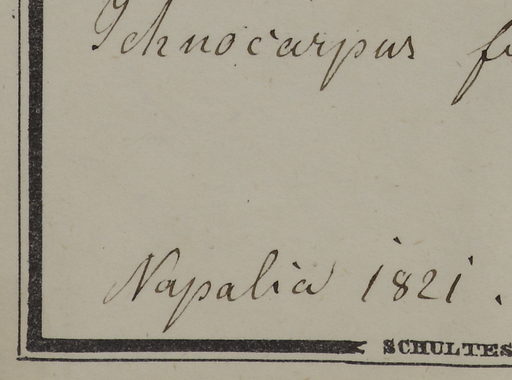 Ichnocarpus fr
Napalia 1821.
SCHULTES